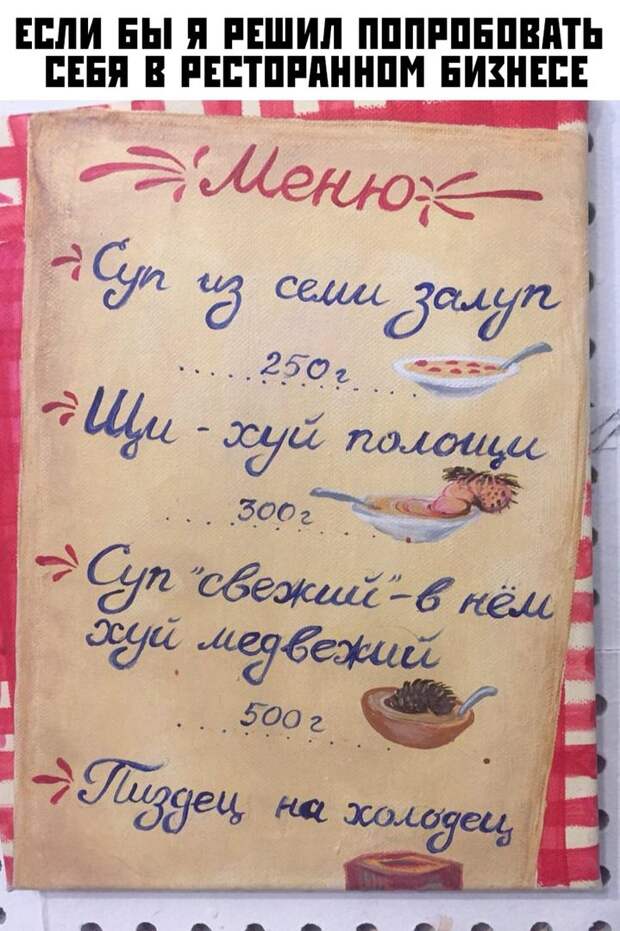 ЕСЛИ БЫ Я РЕШИЛ ПОПРОБОВАТЬ
СЕБЯ В РЕСТОРАННОМ БИЗНЕСЕ
Меню
Суп из семи залуп
250г
Щи - хуй полощи
300г
Суп "свежий" - в нём
хуй медвежий
500г
Пиздец на холодец